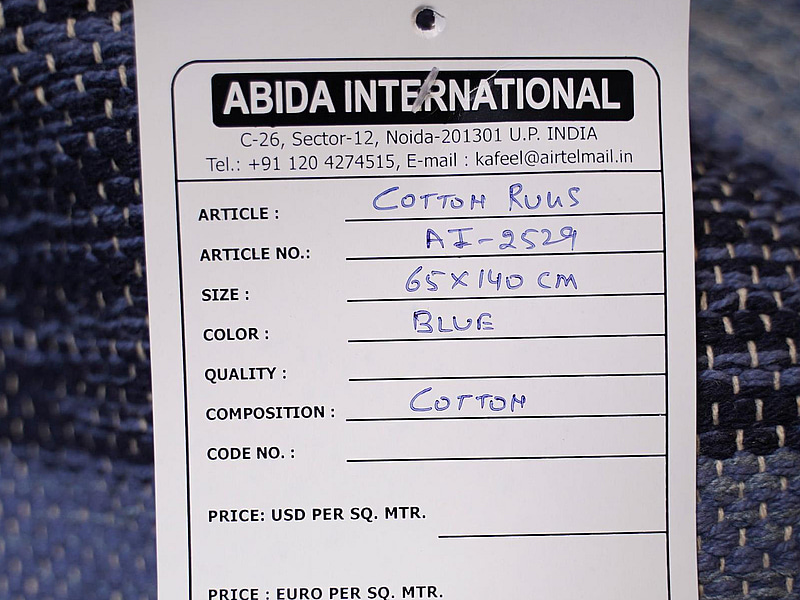 ABIDA INTERNATIONAL
C-26, Sector-12, Noida-201301 U.P. INDIA
Tel.: +91 120 4274515, E-mail : kafeel@airtelmail.in
ARTICLE : COTTON RUGS
ARTICLE NO.: AI-2529
SIZE : 65X140 CM
COLOR : BLUE
QUALITY :
COMPOSITION : COTTON
CODE NO. :
PRICE: USD PER SQ. MTR.
PRICE : EURO PER SQ. MTR.